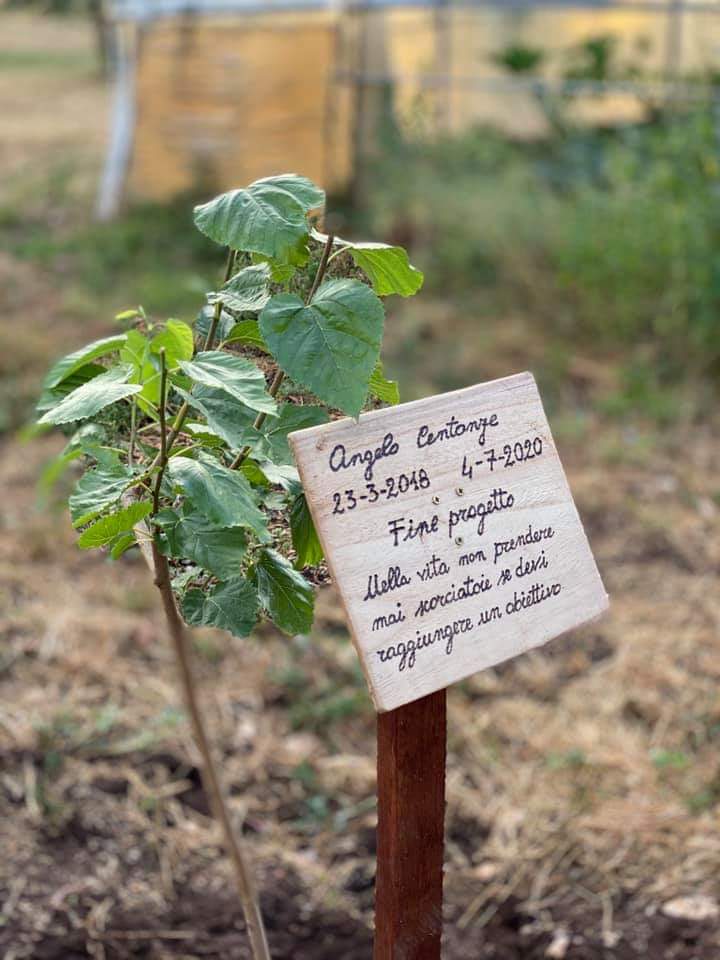 Angelo Centonze
23-3-2018 4-7-2020
Fine progetto
Nella vita non prendere
mai scorciatoie se devi
raggiungere un obiettivo